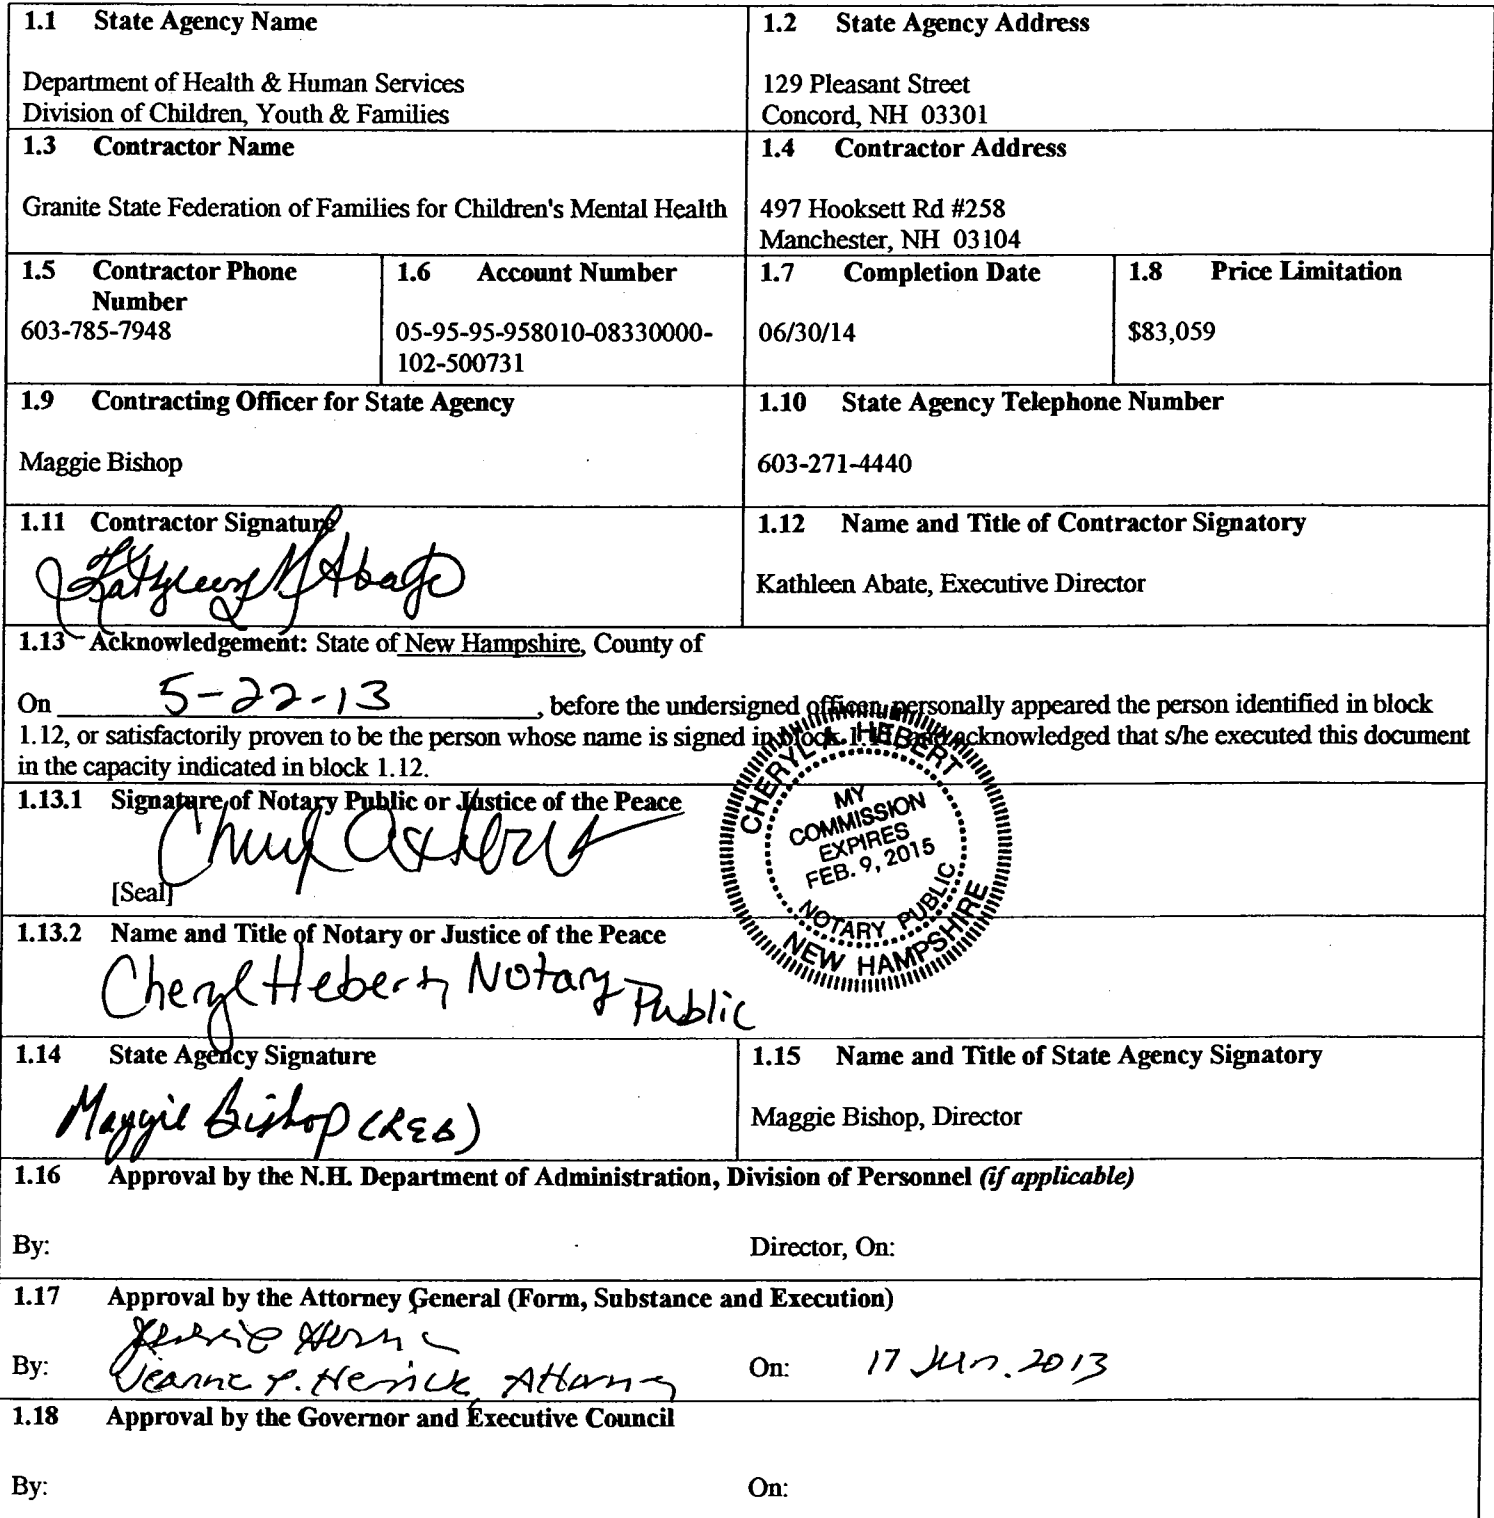 1.1 State Agency Name
1.2 State Agency Address
Department of Health & Human Services
Division of Children, Youth & Families
129 Pleasant Street
Concord, NH 03301
1.3 Contractor Name
1.4 Contractor Address
Granite State Federation of Families for Children's Mental Health
497 Hooksett Rd #258
Manchester, NH 03104
1.5 Contractor Phone
Number
603-785-7948
1.6 Account Number
05-95-95-958010-08330000-
102-500731
1.7 Completion Date
06/30/14
1.8 Price Limitation
$83,059
1.9 Contracting Officer for State Agency
Maggie Bishop
1.10 State Agency Telephone Number
603-271-4440
1.11 Contractor Signature
Kathleen M Abate
1.12 Name and Title of Contractor Signatory
Kathleen Abate, Executive Director
1.13 Acknowledgement: State of New Hampshire, County of
On 5-22-13, before the undersigned officer, personally appeared the person identified in block
1.12, or satisfactorily proven to be the person whose name is signed in block 1.11, and acknowledged that s/he executed this document
in the capacity indicated in block 1.12.
1.13.1 Signature of Notary Public or Justice of the Peace
Cheryl A Hebert
[Seal]
CHERYL A. HEBERT
MY
COMMISSION
EXPIRES
FEB. 9, 2015
NOTARY PUBLIC
NEW HAMPSHIRE
1.13.2 Name and Title of Notary or Justice of the Peace
Cheryl Hebert, Notary Public
1.14 State Agency Signature
Maggie Bishop (REB)
1.15 Name and Title of State Agency Signatory
Maggie Bishop, Director
1.16 Approval by the N.H. Department of Administration, Division of Personnel (if applicable)
By:
Director, On:
1.17 Approval by the Attorney General (Form, Substance and Execution)
By: Jeanne P. Herrick, Attorney
On: 17 Jun. 2013
1.18 Approval by the Governor and Executive Council
By:
On: